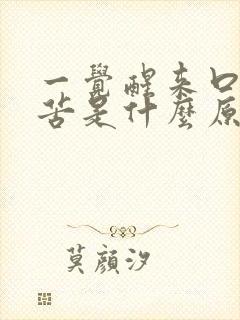 一覺醒來口
苦是什麼原
莫顏汐